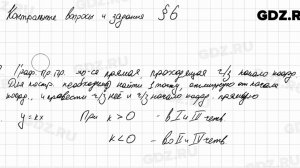 Контрольные вопросы и задания § 6
GDZ.RU
Граф. Пр. пр. яв-ся прямая, проходящая ч/з начало коорд.
Для постр. необходимо найти 1 точку, отличную от начала
коорд., и провести ч/з неё и ч/з начало коорд. прямую
y = kx При k > 0 - в I и III четв.
k < 0 - во II и IV четв.
GDZ.RU